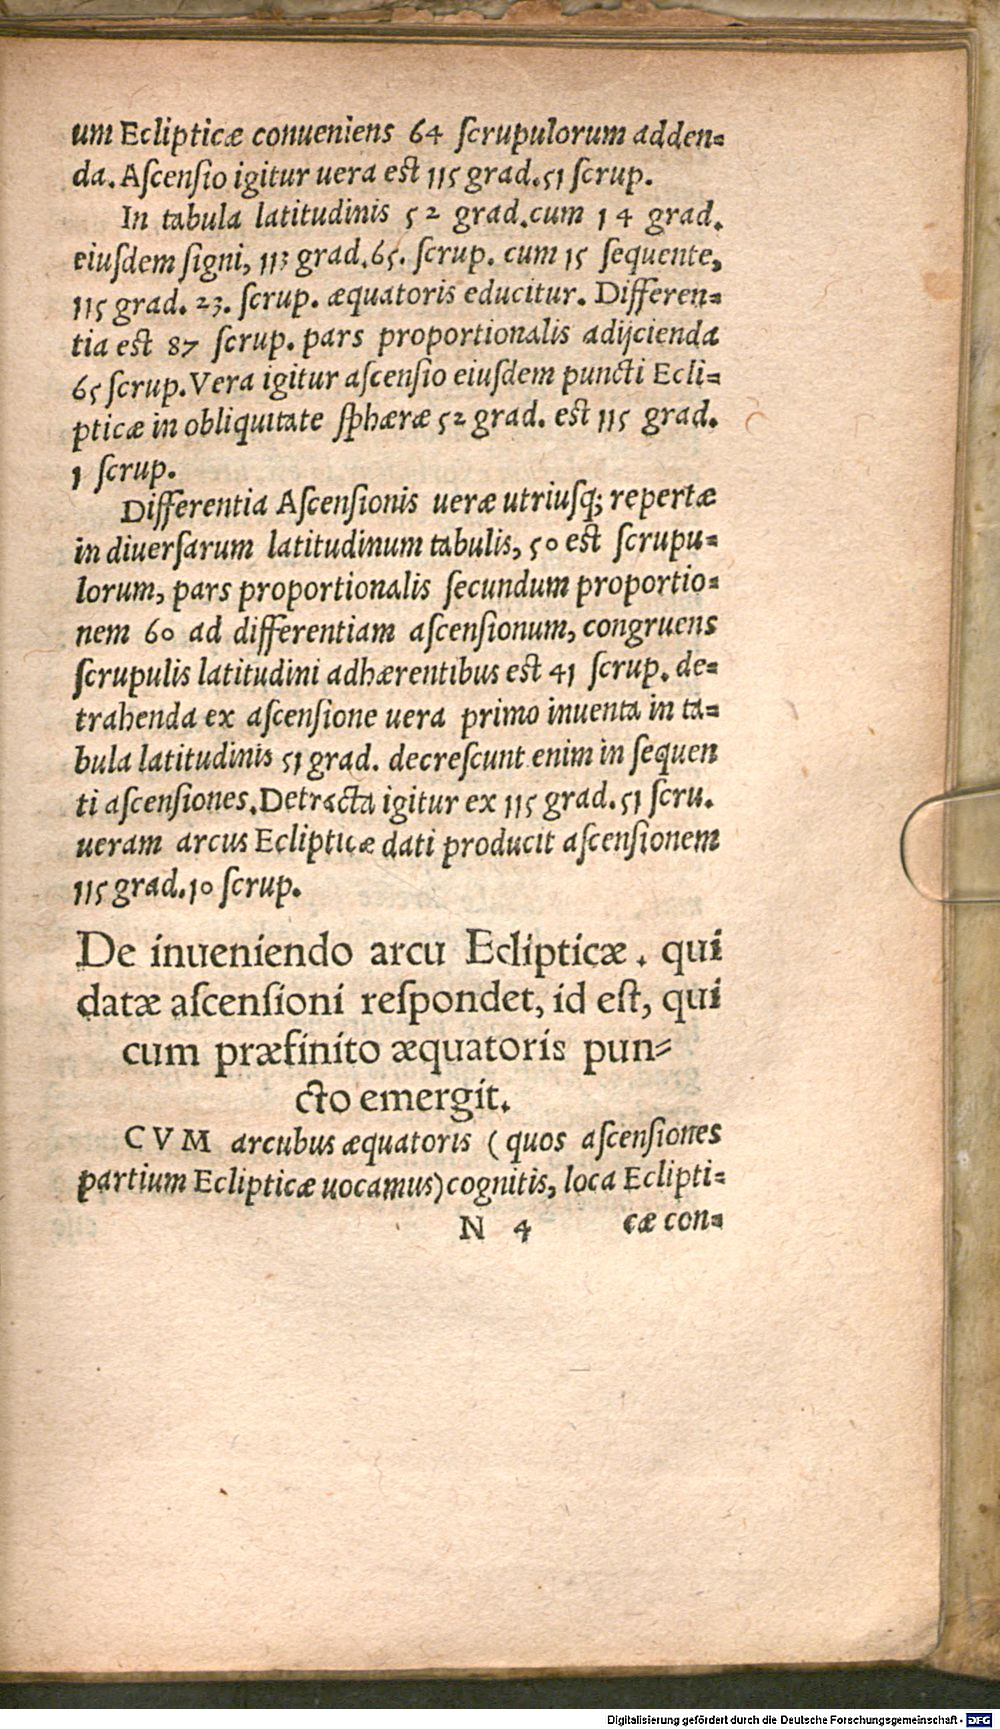 um Eclipticæ conueniens 64 ſcrupulorum adden⸗
da. Aſcenſio igitur uera eſt 115 grad. 51 ſcrup.
In tabula latitudinis 52 grad. cum 14 grad.
eiuſdem ſigni, 113 grad. 65. ſcrup. cum 15 ſequente,
115 grad. 23. ſcrup. æquatoris educitur. Differen⸗
tia eſt 87 ſcrup. pars proportionalis adijcienda
65 ſcrup. Vera igitur aſcenſio eiuſdem puncti Ecli⸗
pticæ in obliquitate ſphæræ 52 grad. eſt 115 grad.
1 ſcrup.
Differentia Aſcenſionis ueræ utriuſq; repertæ
in diuerſarum latitudinum tabulis, 50 eſt ſcrupu⸗
lorum, pars proportionalis ſecundum proportio⸗
nem 60 ad differentiam aſcenſionum, congruens
ſcrupulis latitudini adhærentibus eſt 41 ſcrup. de⸗
trahenda ex aſcenſione uera primo inuenta in ta⸗
bula latitudinis 51 grad. decreſcunt enim in ſequen
ti aſcenſiones. Detracta igitur ex 115 grad. 51 ſcru.
ueram arcus Eclipticæ dati producit aſcenſionem
115 grad. 10 ſcrup.
De inueniendo arcu Eclipticæ. qui
datæ aſcenſioni reſpondet, id eſt, qui
cum præfinito æquatoris pun⸗
cto emergit.
CVM arcubus æquatoris (quos aſcenſiones
partium Eclipticæ uocamus) cognitis, loca Eclipti⸗
N 4 cæ con⸗
Digitalisierung gefördert durch die Deutsche Forschungsgemeinschaft - DFG